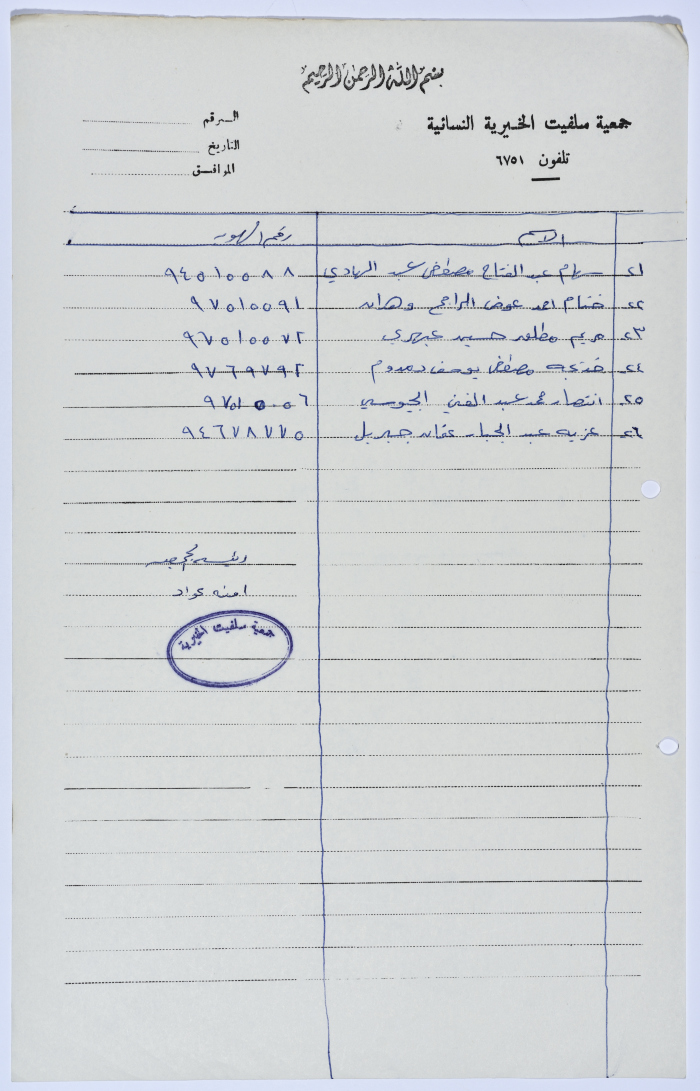 بسم الله الرحمن الرحيم
جمعية سلفيت الخيرية النسائية
تلفون ٦٧٥١
الرقم
التاريخ
الموافق
الاسم رقم الهوية
٢١ سهام عبد الفتاح مصطفى عبد الهادي ٩٤٥١٠٠٨٨
٢٢ ختام احمد عوض الراجح وهدان ٩٧٥١٠٠٩١
٢٣ مريم مظلوم حسين عبهري ٩٦٥١٠٠٧٢
٢٤ خديجه مصطفى يوسف دمدوم ٩٧٦٩٧٩٢
٢٥ انتصار محمد عبد الغني الجيوسي ٩٧٥١٥٠٥٦
٢٦ عزيه عبد الجبار عثمان جبريل ٩٤٦٧٨٧٧٥
رئيسة الجمعية
امنه عواد
جمعية سلفيت الخيرية